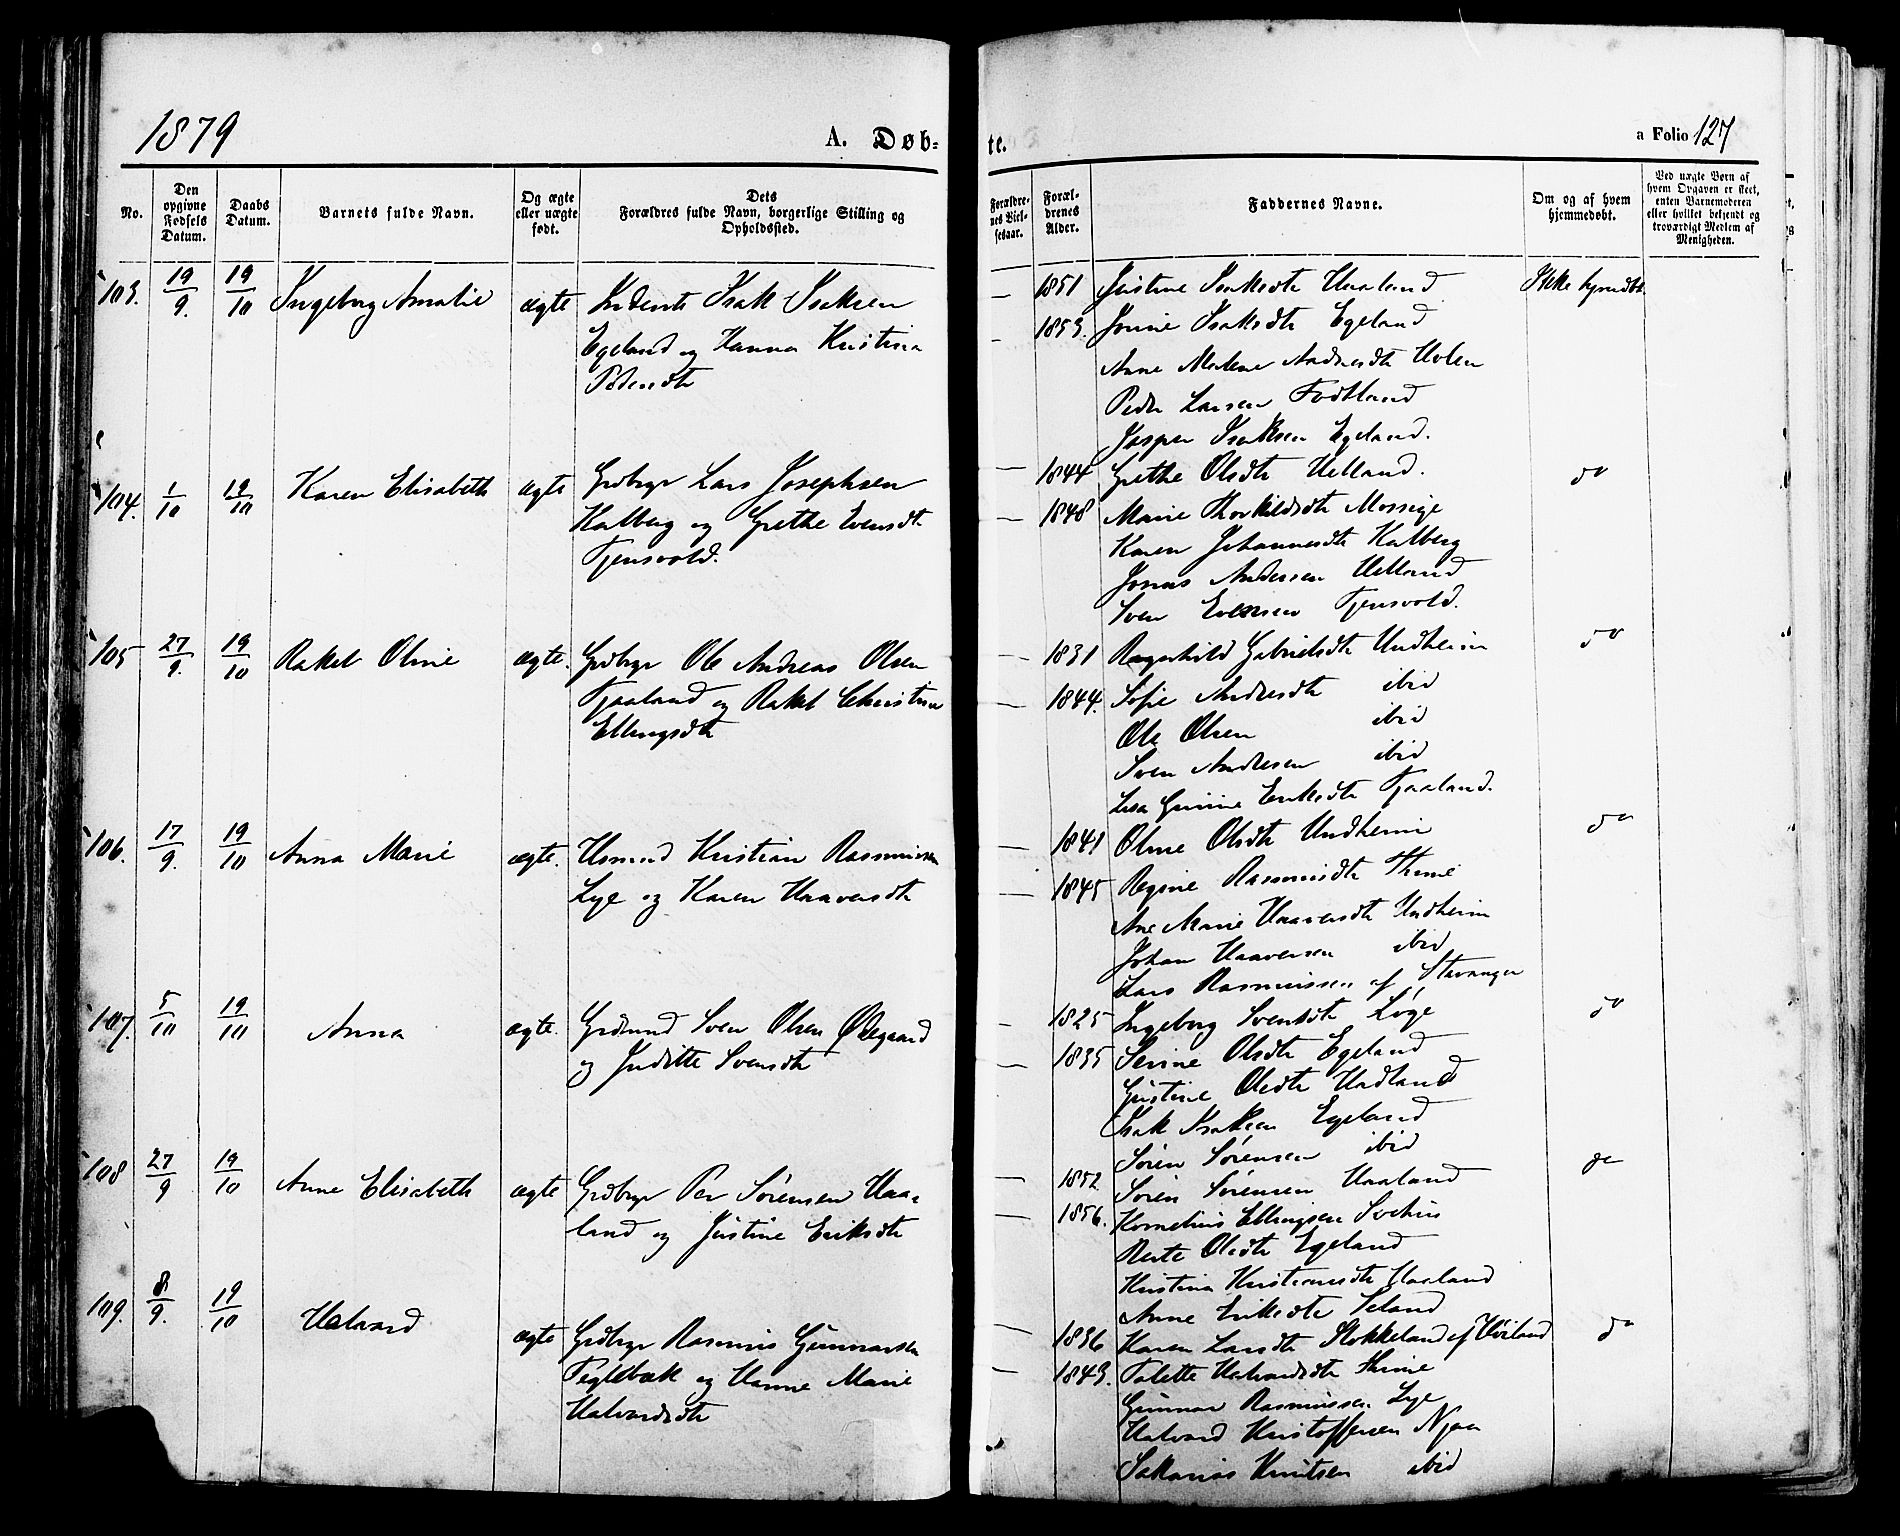 1879
A. Døb-
te.
a Folio 127
No.
Den opgivne Fødsels Datum.
Daabs Datum.
Barnets fulde Navn.
Og ægte eller uægte født.
Dets Forældres fulde Navn, borgerlige Stilling og Opholdssted.
Forældrenes Vielsesaar.
Forældrenes Alder.
Faddernes Navne.
Om og af hvem hjemmedøbt.
Ved uægte Børn af hvem Opgaven er skeet, enten Barnemoderen eller hvilket bekjendt og troværdigt Medlem af Menigheden.
103. 19/9. 19/10 Ingeborg Amalie ægte Isak Isaksen
Egeland og Hanna Kristina
Pedersdtr
— 1851 Justine Isaksdtr Haaland Ikke hjemdbt.
— 1853. Jonine Isaksdtr Egeland
Anne Malene Andersdtr Holen
Peder Larsen Fodtland
Jasper Isaksen Egeland.
104. 1/10 19/10 Karen Elisabeth ægte Grdbrgr Lars Josephsen
Kalberg og Grethe Evensdtr
Tjensvold.
— 1844 Grethe Olsdtr Helland. do
— 1848 Marie Thorkildsdtr Mossige
Karen Johannesdtr Kalberg
Jonas Andersen Helland
Sven Evensen Tjensvold.
105 27/9. 19/10 Rakel Oline ægte. Grdbrgr Ole Andreas Olsen
Tjaaland og Rakel Christine
Ellingsdtr
— 1831 Ragnhild Gabrielsdtr Undheim do
— 1844. Sofie Andersdtr ibid
Ole Olsen ibid
Sven Andersen ibid
Lisa Gurine Eriksdtr Tjaaland.
106. 17/9. 19/10 Anna Marie ægte. Husmd Kristian Rasmussen
Lye og Karen Haaversdtr
— 1841 Oline Olsdtr Undheim do
— 1845 Regine Rasmusdtr Thime
Ane Marie Haaversdtr Undheim
Johan Haaversen ibid
Lars Rasmussen af Stavanger
107. 5/10 19/10 Anna ægte. Grdmnd Sven Olsen Ødegaard
og Juditte Svensdtr
— 1825 Ingeborg Svensdtr Løge do
— 1835 Serine Olsdtr Egeland
Gustine Olsdtr Hadland
Isak Isaksen Egeland
Sören Sörensen ibid
108 27/9 19/10 Anne Elisabeth ægte Grdbrgr Per Sörensen Haa-
land og Justine Eriksdtr
— 1852 Sören Sörensen Haaland do
— 1856. Kornelius Ellingsen
Berte Olsdtr Egeland
Kristina Kristiansdtr Haaland
Anne Eriksdtr Seland
109. 8/9. 19/10 Halvard ægte Grdbrgr Rasmus Gunnarsen
Teglebæk og Hanne Marie
Halvardsdtr
— 1836 Karen Larsdtr Stokkeland af Høiland do
— 1843. Talette Halvardsdtr Thime
Gunnar Rasmussen Lye
Halvard Kristoffersen Njaa
Sakarias Knutsen ibid